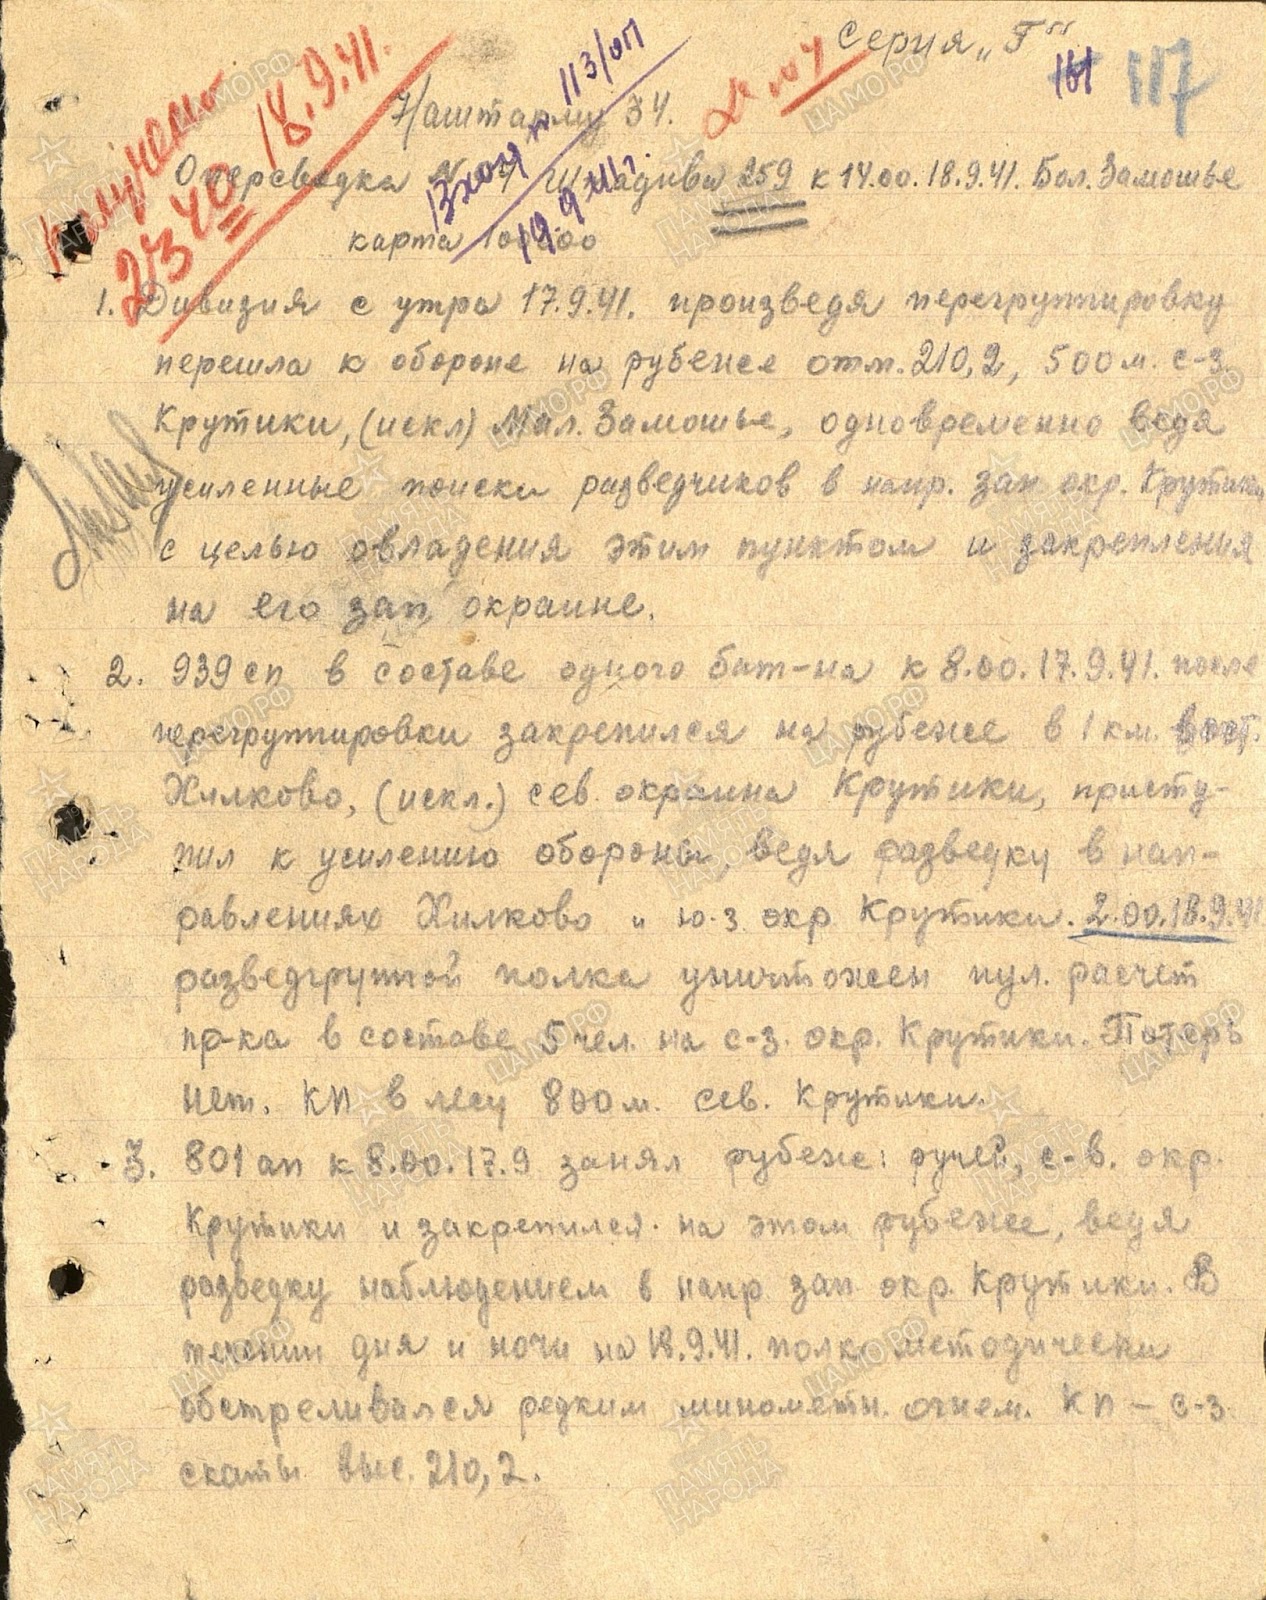 Серия „Г"
161 117
Получено
23 40 18.9.41.
Вход № 113/оп
19 9 41 г.
Наштарму 34.
Оперсводка № 4 Штадива 259 к 14.00. 18.9.41. Бол. Замошье
карта 100000
1. Дивизия с утра 17.9.41. произведя перегруппировку
перешла к обороне на рубеже отм. 210,2, 500 м. с-з.
Крутики, (искл) Мал. Замошье, одновременно ведя
усиленные поиски разведчиков в напр. зап окр. Крутики
с целью овладения этим пунктом и закрепления
на его зап окраине.
2. 939 сп в составе одного бат-на к 8.00. 17.9.41. после
перегруппировки закрепился на рубеже в 1 км. вост.
Хилково, (искл.) сев. окраина Крутики, присту-
пил к усилению обороны, ведя разведку в нап-
равлениях Хилково и ю.з. окр Крутики. 2.00. 18.9.41
разведгруппой полка уничтожен пул. расчет
пр-ка в составе 5 чел. на с-з. окр. Крутики. Потерь
нет. КП в лесу 800 м. сев. Крутики.
3. 801 ап к 8.00. 17.9 занял рубеж: ручей, с-в. окр.
Крутики и закрепился на этом рубеже, ведя
разведку наблюдением в напр зап. окр. Крутики. В
течении дня и ночи на 18.9.41. полк методически
обстреливался редким минометн. огнем. КП – с-з.
скаты выс. 210,2.